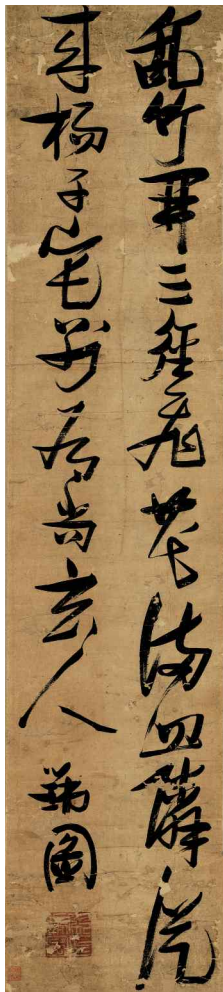 亂竹開三徑飛花滿四隣從
來楊子宅別有尚玄人
瑞圖